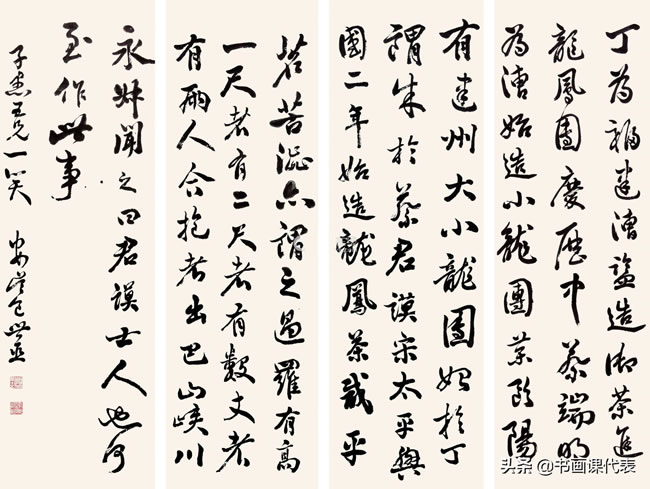 丁為福建漕監造御茶進
龍鳳團慶歷中蔡端明
為漕始造小龍團茶歐陽
有建州大小龍團始於丁
謂成於蔡君謨宋太平興
國二年始造龍鳳茶咸平
茗苦澁亦謂之過羅有高
一尺者有二尺者有數丈者
有兩人合抱者出巴山峽川
永叔聞之曰君謨士人也何
至作此事
子 五兄一笑 包世臣
头条 @书画课代表